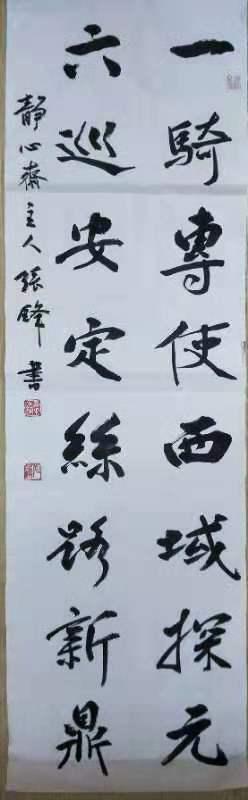 一騎專使西域探元
六巡安定絲路新鼎
靜心齋主人張鋒書